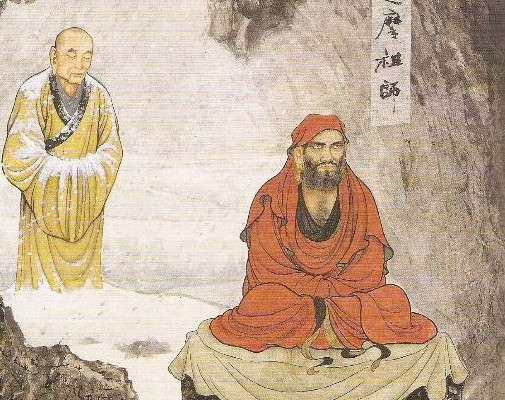 摩祖師